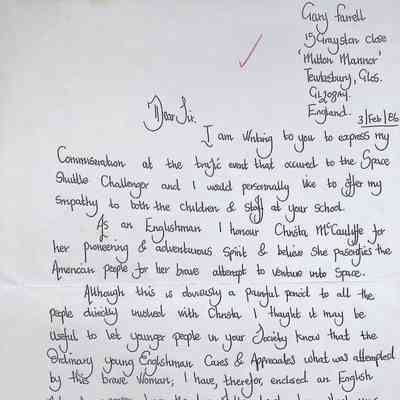 Gary Farrell
15 Grayston Close
'Mitton Mannor'
Tewksbury, Glos.
England.
3/Feb/86
Dear Sir.
I am writing to you to express my
Commiseration at the trajic event that occured to the Space
Shuttle Challenger and I would personnally like to offer my
Sympathy to both the children & staff at your School.
As an Englishman I honour Christa McCauliffe for
her pioneering & adventurous Spirit & believe she pasonifies the
American people for her brave attempt to venture into Space.
Although this is obviously a painful period to all the
people directly involved with Christa I thought it may be
useful to let younger people in your Society know that the
Ordinary young Englishman Cares & Appreciates what was attempted
by this brave Woman; I have, therefor, enclosed an English